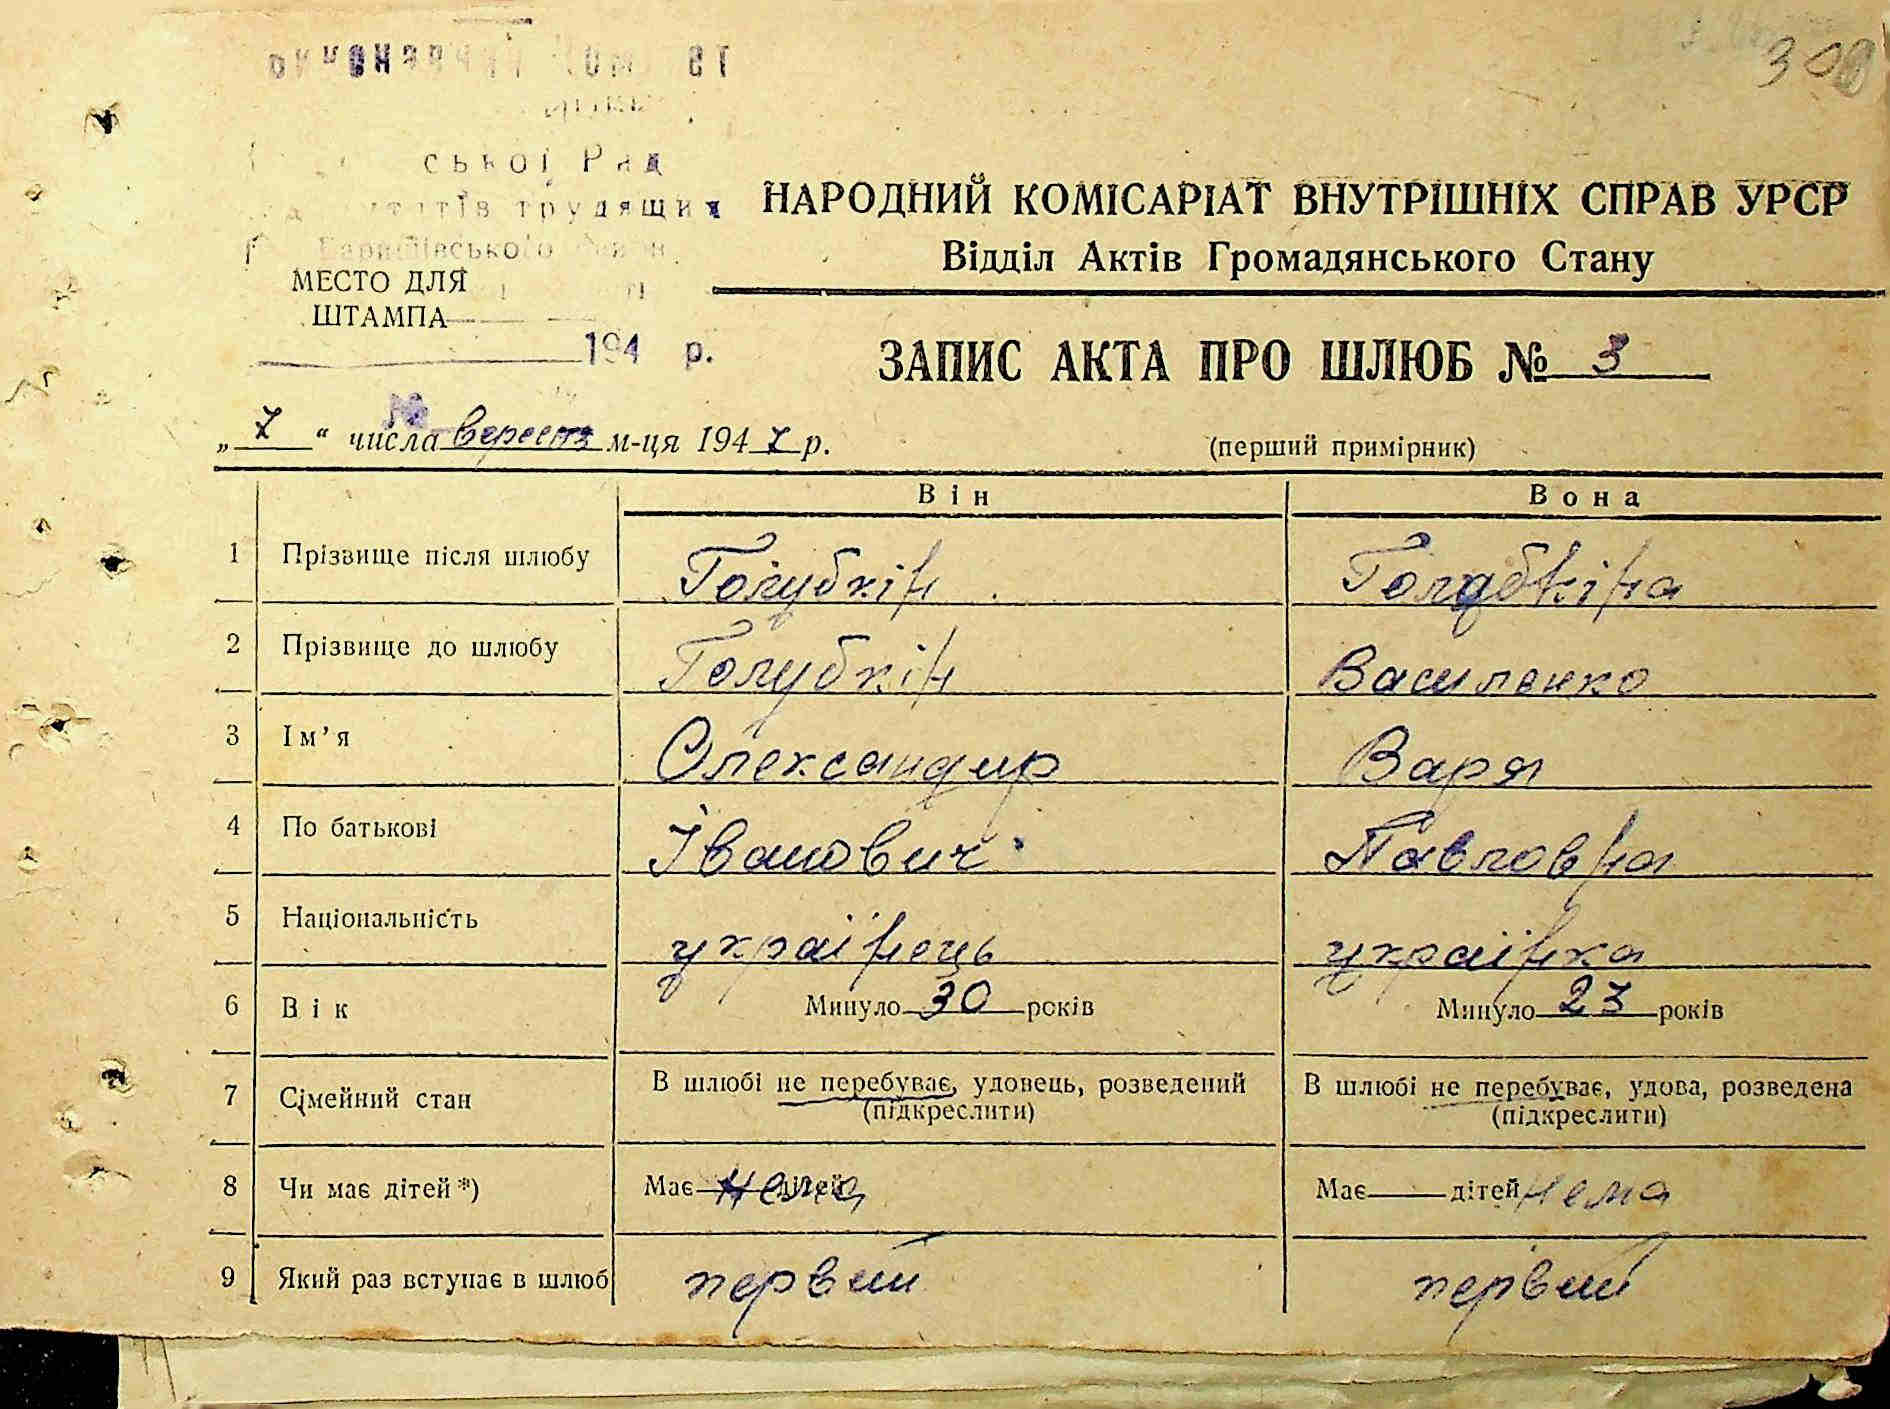 300
ської Рад
утатів трудящих
Баришівського
НАРОДНИЙ КОМІСАРІАТ ВНУТРІШНІХ СПРАВ УРСР
Відділ Актів Громадянського Стану
МЕСТО ДЛЯ
ШТАМПА
194 р.
ЗАПИС АКТА ПРО ШЛЮБ № 3
№
„7“ числа вересня м-ця 1947 р.
(перший примірник)
Він Вона
1 Прізвище після шлюбу Голубкін Голубкіна
2 Прізвище до шлюбу Голубкін Василенко
3 Ім’я Олександир Варя
4 По батькові Іванович Павловна
5 Національність українець українка
6 Вік Минуло 30 років Минуло 23 років
7 Сімейний стан В шлюбі не перебуває, удовець, розведений В шлюбі не перебуває, удова, розведена
(підкреслити) (підкреслити)
8 Чи має дітей*) Має дітей нема Має дітей нема
9 Який раз вступає в шлюб первий первий